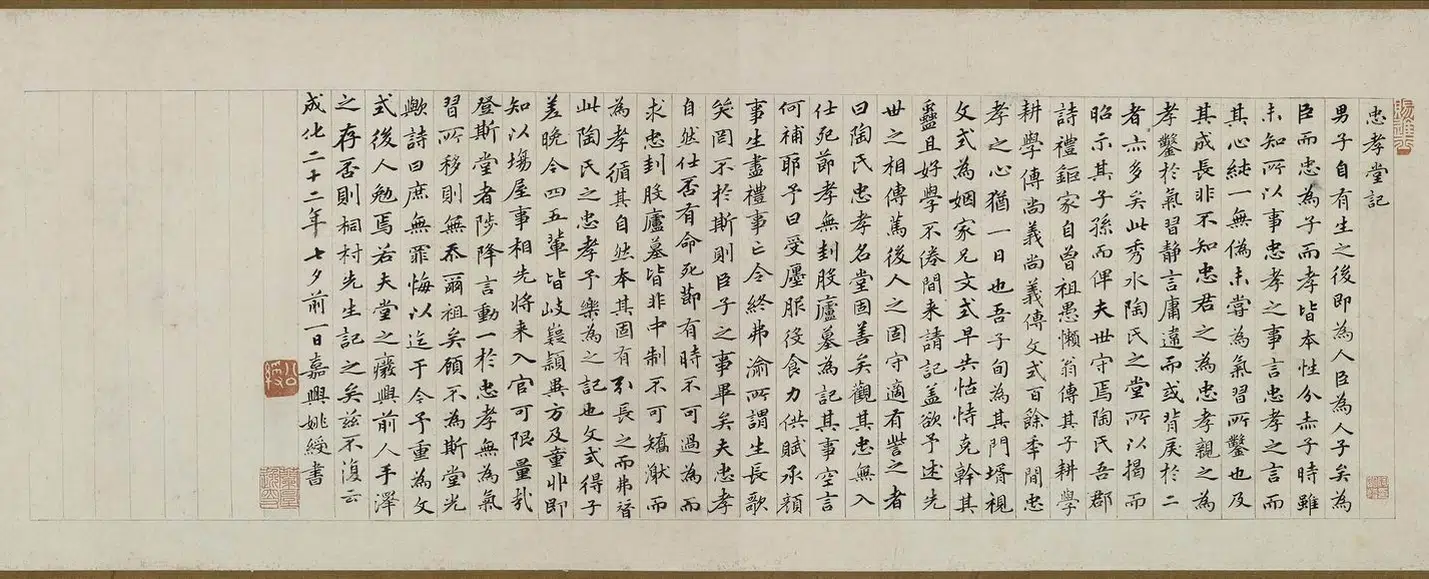 忠孝堂記
男子自有生之後即為人臣為人子矣為
臣而忠為子而孝皆本性分赤子時雖
未知所以事忠孝之事言忠孝之言而
其心純一無偽未嘗為氣習所鑿也及
其成長非不知忠君之為忠孝親之為
孝鑿於氣習静言庸違而或背戾於二
者亦多矣此秀水陶氏之堂所以揭而
昭示其子孫而俾夫世守焉陶氏吾郡
詩禮鉅家自曾祖愚懶翁傳其子耕學
耕學傳尚義尚義傳文式百餘季間忠
孝之心猶一日也吾子旬為其門壻視
文式為姻家兄文式早失怙恃克幹其
蠱且好學不倦間来請記盖欲予述先
世之相傳篤後人之固守適有訾之者
曰陶氏忠孝名堂固善矣觀其忠無入
仕死節孝無刲股廬墓為記其事空言
何補耶予曰受廛服役食力供賦承顔
事生盡禮事亡令終弗渝所謂生長歌
㒵罔不於斯則臣子之事畢矣夫忠孝
自然仕否有命死節有時不可過為而
求忠刲股廬墓皆非中制不可矯激而
為孝循其自然本其固有引長之而弗替
此陶氏之忠孝予樂為之記也文式得子
差晩今四五輩皆岐嶷頴異方及童丱即
知以塲屋事相先将来入官可限量㢤
登斯堂者陟降言動一於忠孝無為氣
習所移則無忝爾祖矣顧不為斯堂光
歟詩曰庶無罪悔以迄于今予重為文
式後人勉焉若夫堂之癈興前人手澤
之存否則桐村先生記之矣兹不復云
成化二十二年七夕前一日嘉興姚綬書
公綬